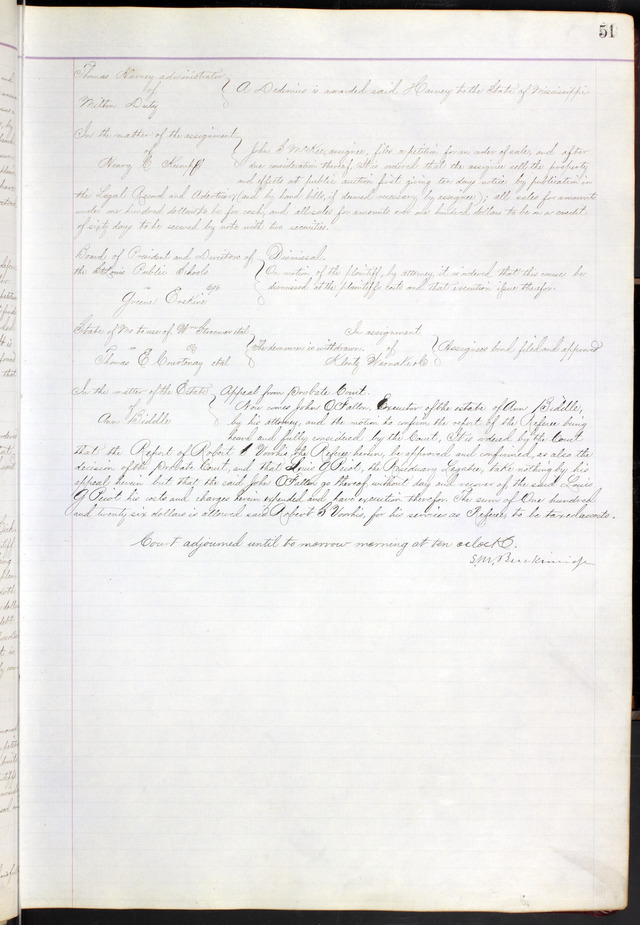 51
Thomas Harney administrator
of
Milton Duty
A Dedimus is awarded said Harney to the State of Mississippi
In the matter of the assignment
of
Henry C Kumpf
John S McKee, assignee, files a petition for an order of sale, and after
due consideration thereof, it is ordered that the assignee sell the property
and effects at public auction first giving ten days notice by publication in
the Legal Record and Advertiser, (and by hand bills, if deemed necessary by assignee); all sales for amounts
under one hundred dollars to be for cash, and all sales for amounts over one hundred dollars to be on a credit
of sixty days to be secured by note with two securities.
Board of President and Directors of
the St Louis Public Schools
vs
Greene Erskine
Dismissal.
On motion of the plaintiff, by attorney, it is ordered that this cause be
dismissed at the plaintiffs costs and that execution issue therefor.
State of Mo to use of Wm etal
vs
Thomas E. Courtenay etal
The demurrer is withdrawn
In assignment
of
Assignees bond filed and approved
In the matter of the Estate
of
Ann Biddle
Appeal from Probate Court.
Now comes John O'Fallon, Executor of the estate of Ann Biddle,
by his attorney, and the motion to confirm the report of the Referee being
heard and fully considered by the Court, It is ordered by the Court
that the Report of Robert Voorhis, the Referee herein, be approved and confirmed, as also the
decision of the Probate Court, and that Louis G Picot, the Residuary Legatee, take nothing by his
appeal herein but that the said John O'Fallon go thereof without day and recover of the said Louis
G Picot his costs and charges herein expended and have execution therefor. The sum of One hundred
and twenty six dollars is allowed said Robert S Voorhis, for his service as Referee, to be taxed as costs.
Court adjourned until to morrow morning at ten oclock.
S. M. Breckinridge